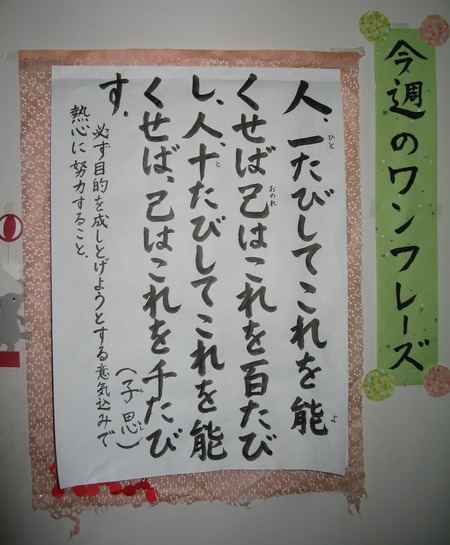 今週のワンフレーズ
人、一たびしてこれを能
くせば己はこれを百たび
し、人、十たびしてこれを能
くせば、己はこれを千たび
す。
(子思)
必ず目的を成しとげようとする意気込みで
熱心に努力すること、